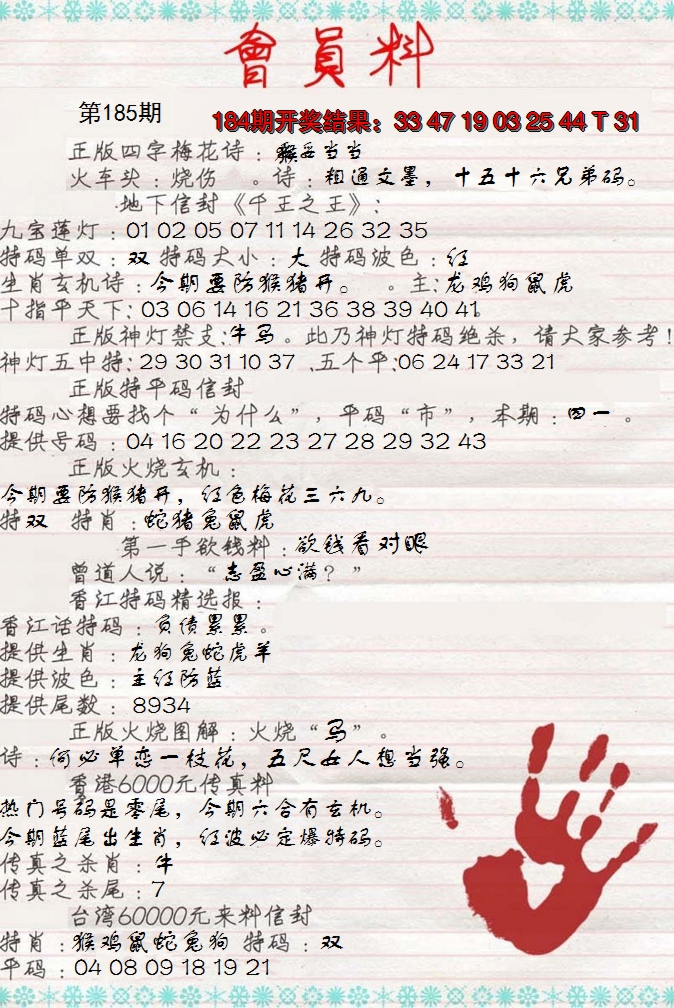 會員料
第185期
184期开奖结果：33 47 19 03 25 44 T 31
正版四字梅花诗：猴妥当当
火车头：烧伤 。诗：粗通文墨，十五十六兄弟码。
地下信封《千王之王》：
九宝莲灯：01 02 05 07 11 14 26 32 35
特码单双：双 特码大小：大 特码波色：红
生肖玄机诗：今期要防猴猪开。 。主：龙鸡狗鼠虎
十指平天下：03 06 14 16 21 36 38 39 40 41
正版神灯禁支：牛马。此乃神灯特码绝杀，请大家参考！
神灯五中特：29 30 31 10 37 、五个平：06 24 17 33 21
正版特平码信封
特码心想要找个“为什么”，平码“市”，本期：四一 。
提供号码：04 16 20 22 23 27 28 29 32 43
正版火烧玄机：
今期要防猴猪开，红色梅花三六九。
特双 特肖：蛇猪兔鼠虎
第一手欲钱料：欲钱看对眼
曾道人说：“志盈心满？”
香江特码精选报：
香江话特码：负债累累。
提供生肖：龙狗兔蛇虎羊
提供波色：主红防蓝
提供尾数：8934
正版火烧图解：火烧“马”。
诗：何必单恋一枝花，五尺女人想当强。
香港6000元传真料
热门号码是零尾，今期六合有玄机。
今期蓝尾出生肖，红波必定爆特码。
传真之杀肖：牛
传真之杀尾：7
台湾60000元来料信封
特肖：猴鸡鼠蛇兔狗 特码：双
平码：04 08 09 18 19 21